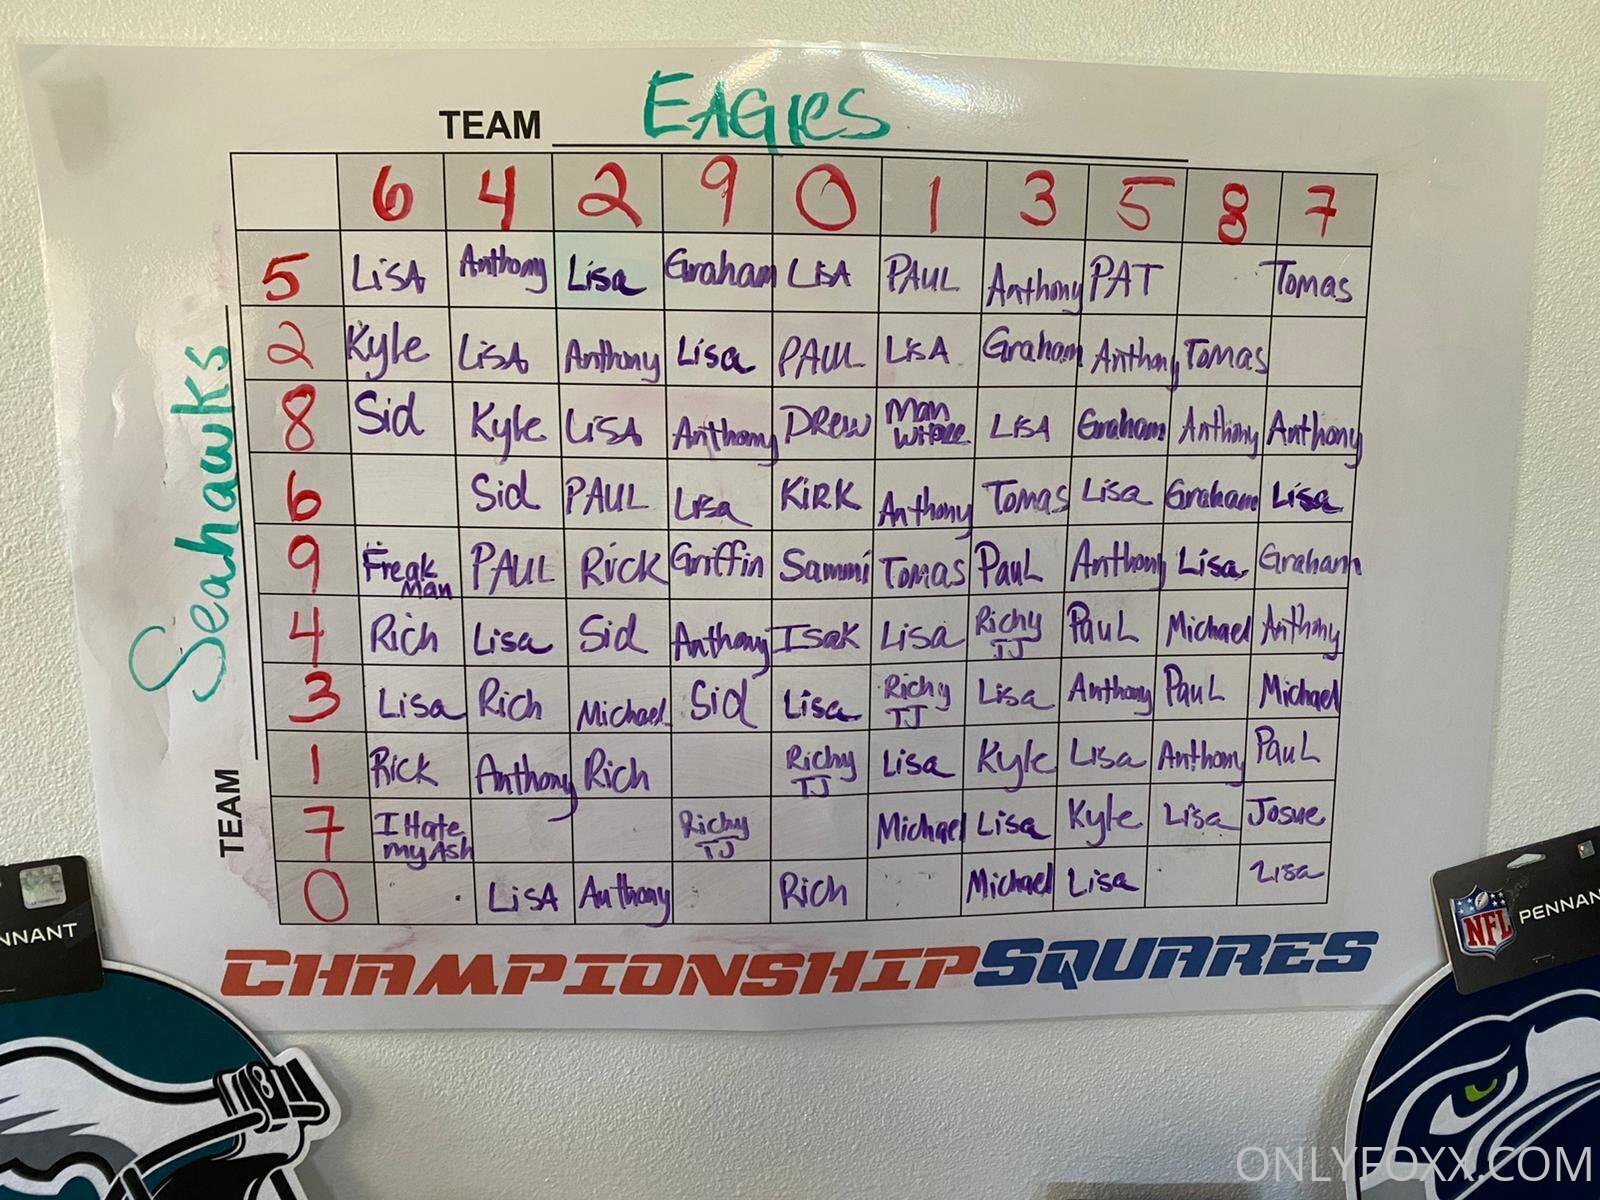 TEAM EAGles
6 4 2 9 0 1 3 5 8 7
5 LiSA Anthony Lisa Graham LiSA PAUL Anthony PAT Tomas
2 Kyle LiSA Anthony Lisa PAUL LiSA Graham Anthony Tomas
8 Sid Kyle LiSA Anthony DREW Man LiSA Graham Anthony Anthony
6 Sid PAUL Lisa KiRK Anthony Tomas Lisa Graham Lisa
9 Freak Man PAUL Rick Griffin Sammi Tomas PauL Anthony Lisa Graham
4 Rich Lisa Sid Anthony Isak Lisa Richy TJ PauL Michael Anthony
3 Lisa Rich Michael Sid Lisa Richy TJ Lisa Anthony PauL Michael
1 Rick Anthony Rich Richy TJ Lisa Kyle Lisa Anthony PauL
7 I Hate my Ash Richy TJ Michael Lisa Kyle Lisa Josue
0 LiSA Anthony Rich Michael Lisa Lisa
TEAM Seahawks
CHAMPIONSHIPSQUARES
NNANT
NFL PENNAN
ONLYFOXX.COM